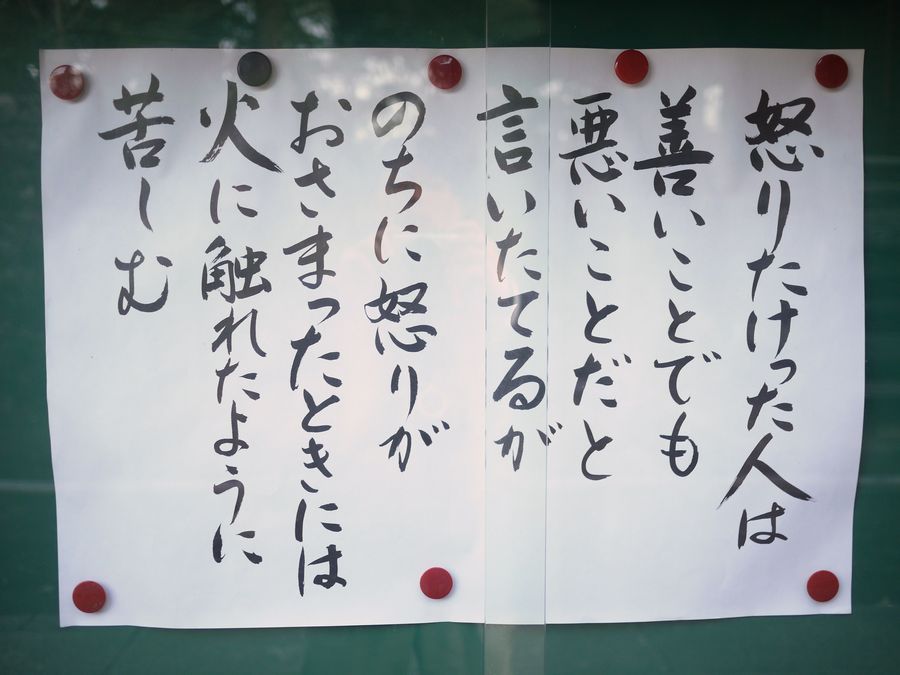 怒りたけった人は
善いことでも
悪いことだと
言いたてるが
のちに怒りが
おさまったときには
火に触れたように
苦しむ